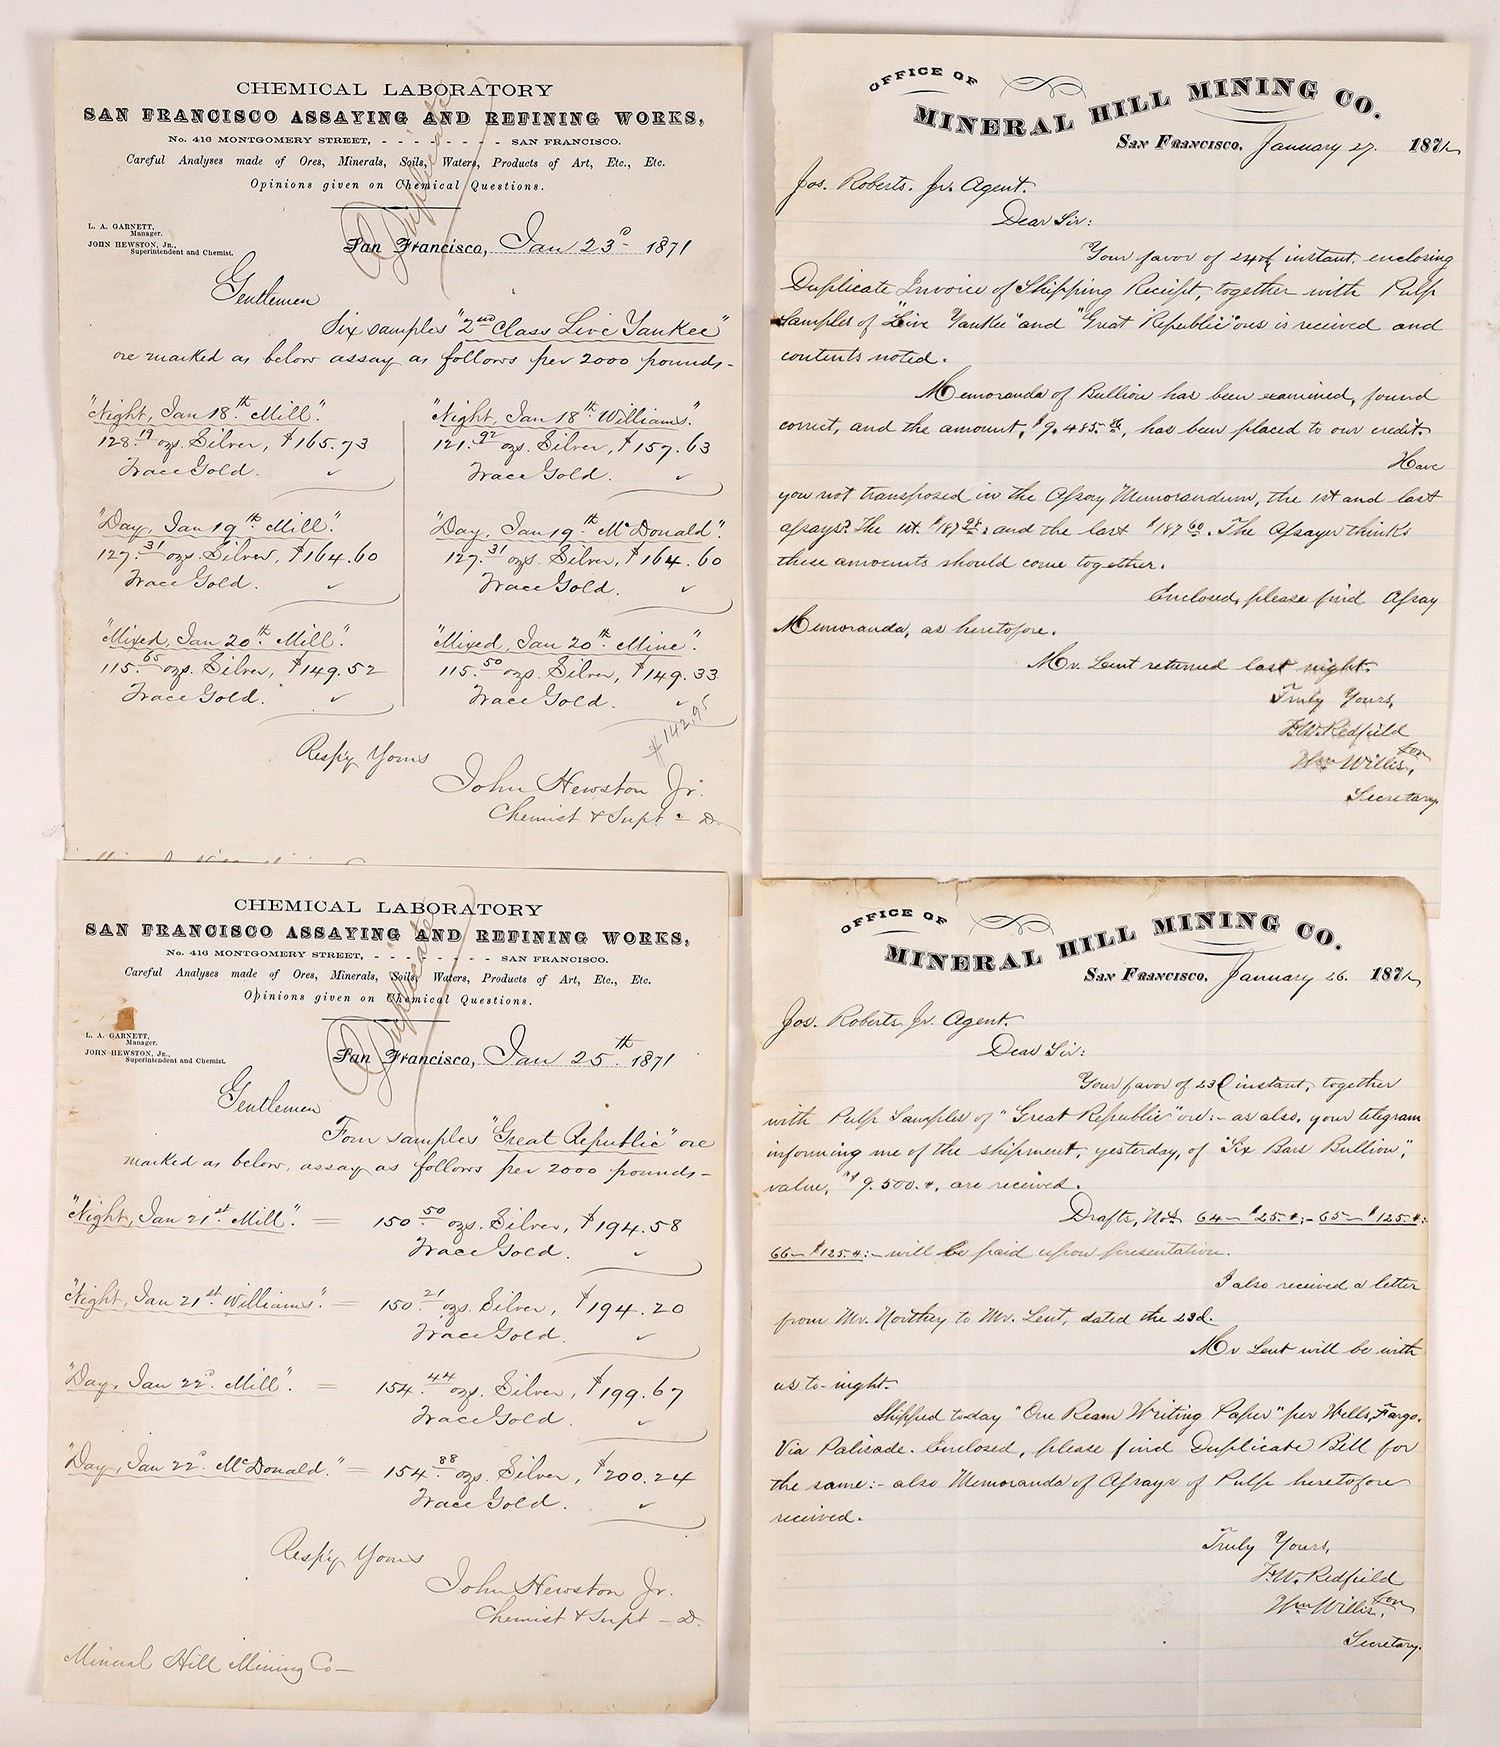 CHEMICAL LABORATORY
SAN FRANCISCO ASSAYING AND REFINING WORKS,
No. 416 MONTGOMERY STREET, - - - - - - - - SAN FRANCISCO.
Careful Analyses made of Ores, Minerals, Soils, Waters, Products of Art, Etc., Etc.
Opinions given on Chemical Questions.
Duplicate
L. A. GARNETT,
Manager.
JOHN HEWSTON, JR.,
Superintendent and Chemist.
San Francisco, Jan 23d 1871
Gentlemen
Six samples "2nd Class Live Yankee"
ore marked as below assay as follows per 2000 pounds-
"Night, Jan 18th Mill".
128.19 ozs. Silver, $165.73
Trace Gold. ✓
"Day, Jan 19th Mill".
127.31 ozs Silver, $164.60
Trace Gold. ✓
"Mixed, Jan 20th Mill".
115.65 ozs. Silver, $149.52
Trace Gold. ✓
"Night, Jan 18th Williams".
121.92 ozs. Silver, $157.63
Trace Gold. ✓
"Day, Jan 19th McDonald".
127.31 ozs. Silver, $164.60
Trace Gold. ✓
"Mixed, Jan 20th Mine".
115.50 ozs. Silver, $149.33
Trace Gold. ✓
$142.95
Resp'y Yours
John Hewston Jr.
Chemist & Supt - D.
OFFICE OF
MINERAL HILL MINING CO.
San Francisco, January 27. 1871
Jos. Roberts. Jr. Agent.
Dear Sir:
Your favor of 24th instant, enclosing
Duplicate Invoice of Shipping Receipt, together with Pulp
Samples of "Live Yankee" and "Great Republic" ores is received and
contents noted.
Memoranda of Bullion has been examined, found
correct, and the amount, $9.485. has been placed to our credit.
Have
you not transposed in the Assay Memorandum, the 1st and last
assays? The 1st. $187 and the last $187 60. The Assayer thinks
these amounts should come together.
Enclosed, please find Assay
Memoranda, as heretofore.
Mr. Lent returned last night.
Truly Yours,
F.W. Redfield
for
Wm Willis,
Secretary.
CHEMICAL LABORATORY
SAN FRANCISCO ASSAYING AND REFINING WORKS,
No. 416 MONTGOMERY STREET, - - - - - - - - SAN FRANCISCO.
Careful Analyses made of Ores, Minerals, Soils, Waters, Products of Art, Etc., Etc.
Opinions given on Chemical Questions.
Duplicate
L. A. GARNETT,
Manager.
JOHN HEWSTON, JR.,
Superintendent and Chemist.
San Francisco, Jan 25th 1871
Gentlemen
Four samples "Great Republic" ore
marked as below, assay as follows per 2000 pounds-
"Night, Jan 21st Mill". = 150.50 ozs. Silver, $194.58
Trace Gold. ✓
"Night, Jan 21st Williams". = 150.21 ozs. Silver, $194.20
Trace Gold. ✓
"Day, Jan 22d Mill". = 154.44 ozs. Silver, $199.67
Trace Gold. ✓
"Day, Jan 22d McDonald." = 154.88 ozs. Silver, $200.24
Trace Gold. ✓
Resp'y Yours
John Hewston Jr.
Chemist & Supt - D.
Mineral Hill Mining Co-
OFFICE OF
MINERAL HILL MINING CO.
San Francisco, January 26. 1871
Jos. Roberts, Jr. Agent.
Dear Sir:
Your favor of 23d instant, together
with Pulp Samples of "Great Republic" ore:- as also, your telegram
informing me of the shipment, yesterday, of "Six Bars Bullion",
value, "$9.500. are received.
Drafts, Nos. 64- $25. - 65- $125.
66- $125. :- will be paid upon presentation.
I also received a letter
from Mr. Northey to Mr. Lent, dated the 23d.
Mr Lent will be with
us to-night.
Shipped today "One Ream Writing Paper" per Wells, Fargo.
Via Palisade. Enclosed, please find Duplicate Bill for
the same:- also Memoranda of Assays of Pulp heretofore
received.
Truly Yours,
F.W. Redfield
for
Wm Willis,
Secretary.